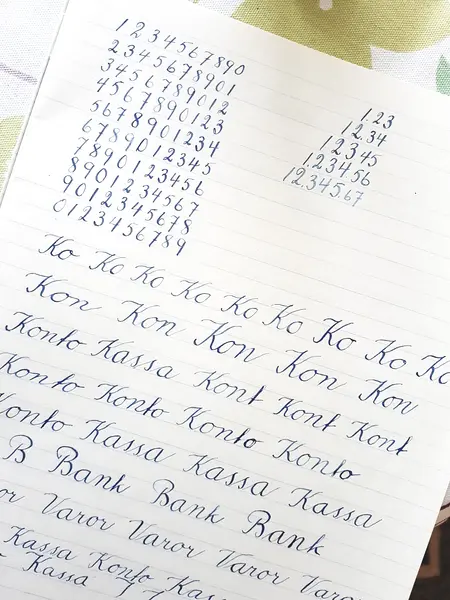 1234567890
2345678901
3456789012
4567890123
5678901234
6789012345
7890123456
8901234567
9012345678
0123456789
1.23
12.34
123.45
1.234.56
12.345.67
Ko Ko Ko Ko Ko Ko Ko Ko Ko
Kon Kon Kon Kon Kon
Konto Kassa Kont Kont Kont
Konto Konto Konto Konto
Konto Kassa Kassa Kassa
B Bank Bank Bank
Varor Varor Varor Varor
Kassa Konto
Kassa